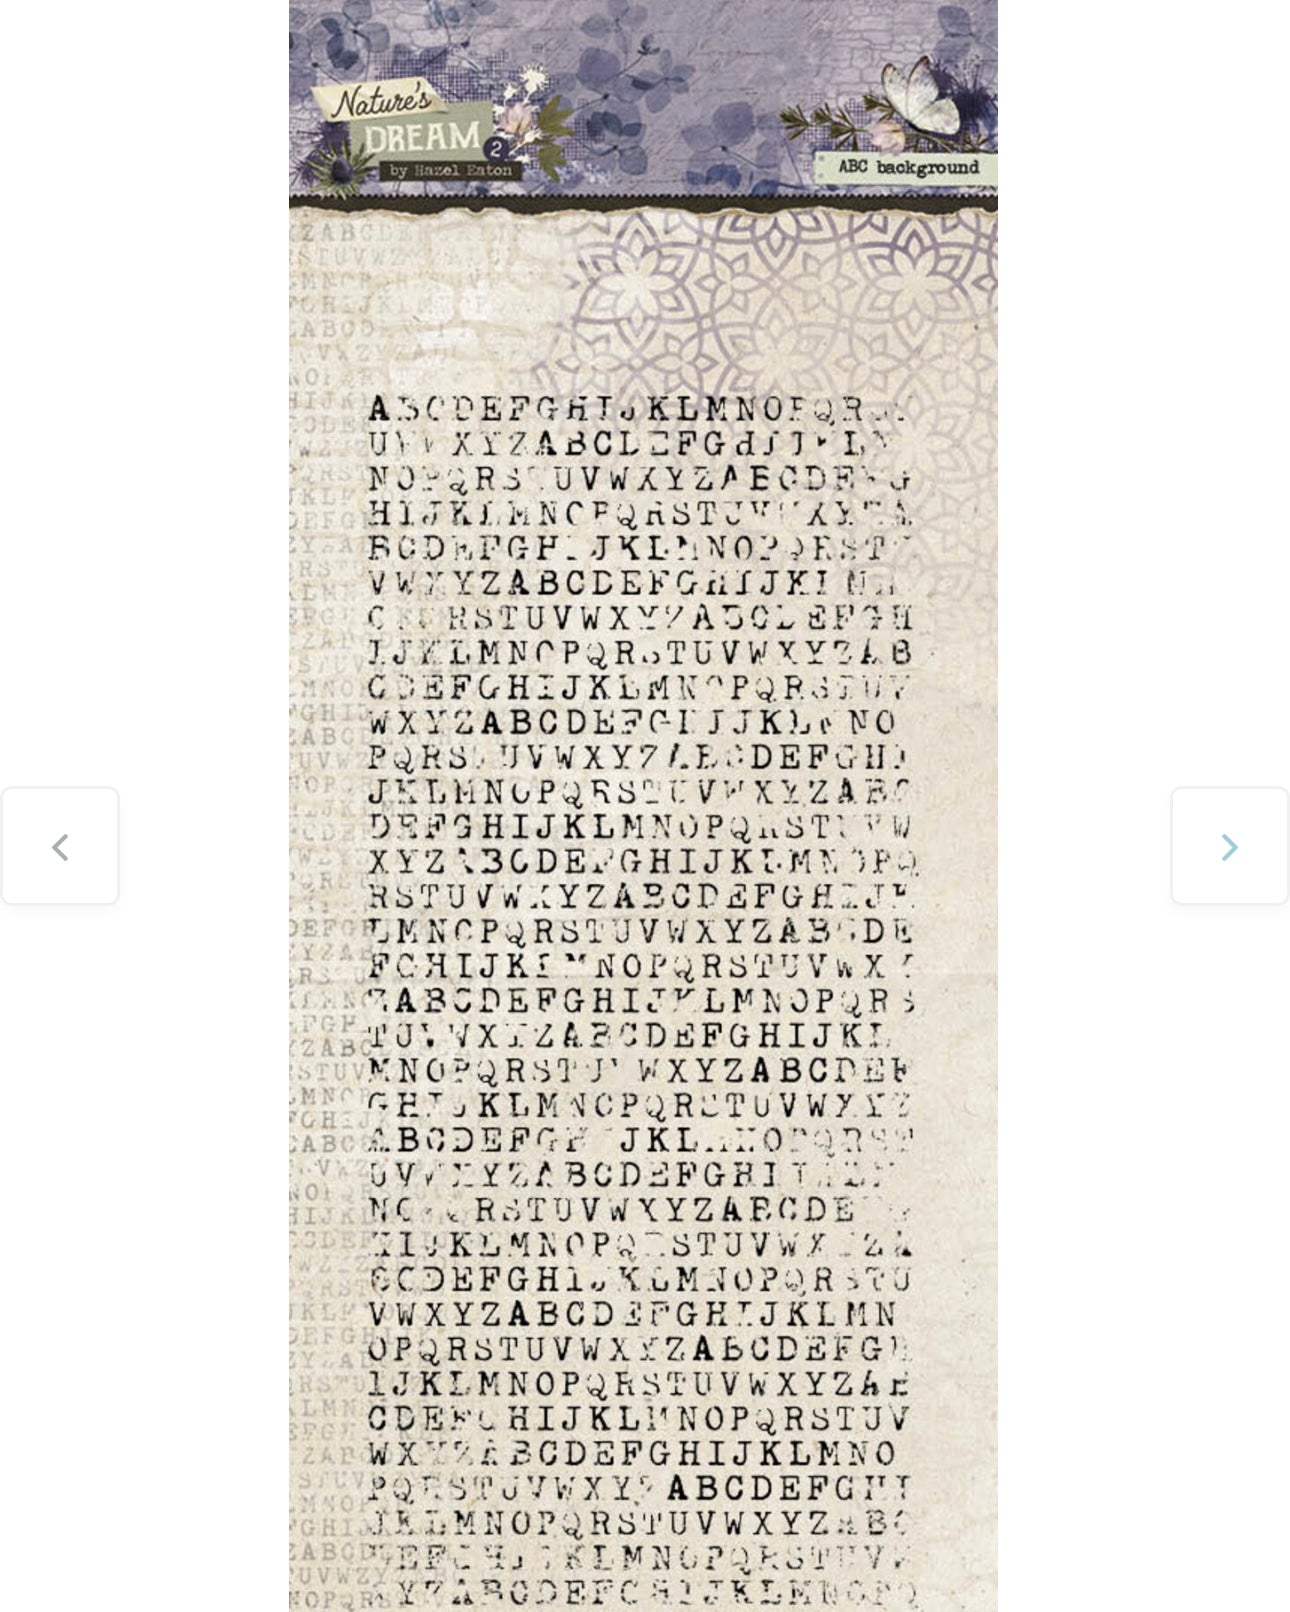 Nature's
DREAM
2
by Hazel Eaton
ABC background
ABCDEFGHIJKLMNOPQRST
UVWXYZABCDEFGHIJKLM
NOPQRSTUVWXYZABCDEFG
HIJKLMNOPQRSTUVWXYZA
BCDEFGHIJKLMNOPQRSTU
VWXYZABCDEFGHIJKLMN
OPQRSTUVWXYZABCDEFGH
IJKLMNOPQRSTUVWXYZAB
CDEFGHIJKLMNOPQRSTUV
WXYZABCDEFGHIJKLMNO
PQRSTUVWXYZABCDEFGHI
JKLMNOPQRSTUVWXYZABC
DEFGHIJKLMNOPQRSTUVW
XYZABCDEFGHIJKLMNOPQ
RSTUVWXYZABCDEFGHIJK
LMNOPQRSTUVWXYZABCDE
FGHIJKLMNOPQRSTUVWXY
ZABCDEFGHIJKLMNOPQRS
TUVWXYZABCDEFGHIJKL
MNOPQRSTUVWXYZABCDEF
GHIJKLMNOPQRSTUVWXYZ
ABCDEFGHIJKLMNOPQRST
UVWXYZABCDEFGHIJKLM
NOPQRSTUVWXYZABCDEFG
HIJKLMNOPQRSTUVWXYZA
BCDEFGHIJKLMNOPQRSTU
VWXYZABCDEFGHIJKLMN
OPQRSTUVWXYZABCDEFGH
IJKLMNOPQRSTUVWXYZAB
CDEFGHIJKLMNOPQRSTUV
WXYZABCDEFGHIJKLMNO
PQRSTUVWXYZABCDEFGHI
JKLMNOPQRSTUVWXYZABC
DEFGHIJKLMNOPQRSTUVW
XYZABCDEFGHIJKLMNOPQ